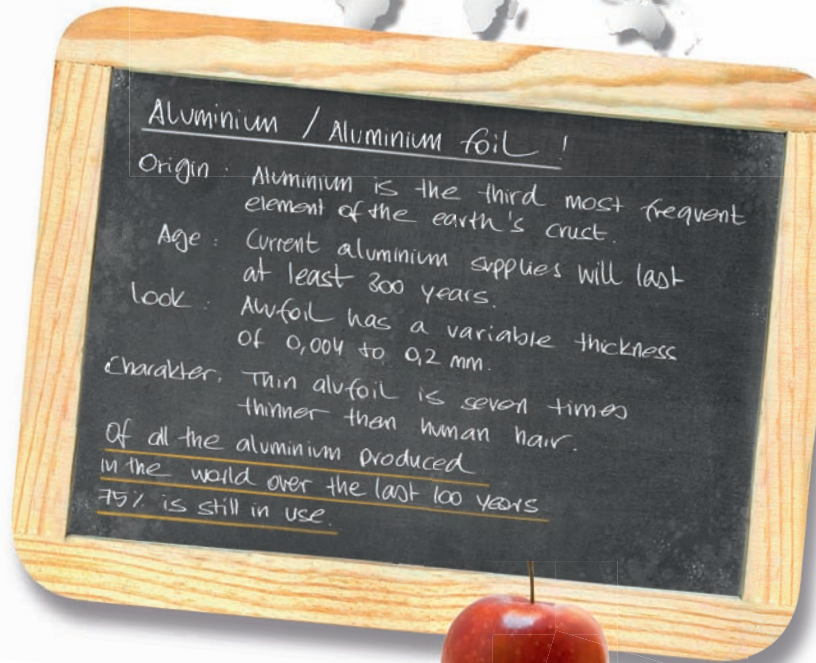 Aluminium / Aluminium foil !
Origin : Aluminium is the third most frequent
element of the earth's crust.
Age : Current aluminium supplies will last
at least 300 years.
Look : Alufoil has a variable thickness
of 0,004 to 0,2 mm.
Charakter: Thin alufoil is seven times
thinner then human hair.
Of all the aluminium produced
in the world over the last 100 years
75% is still in use.